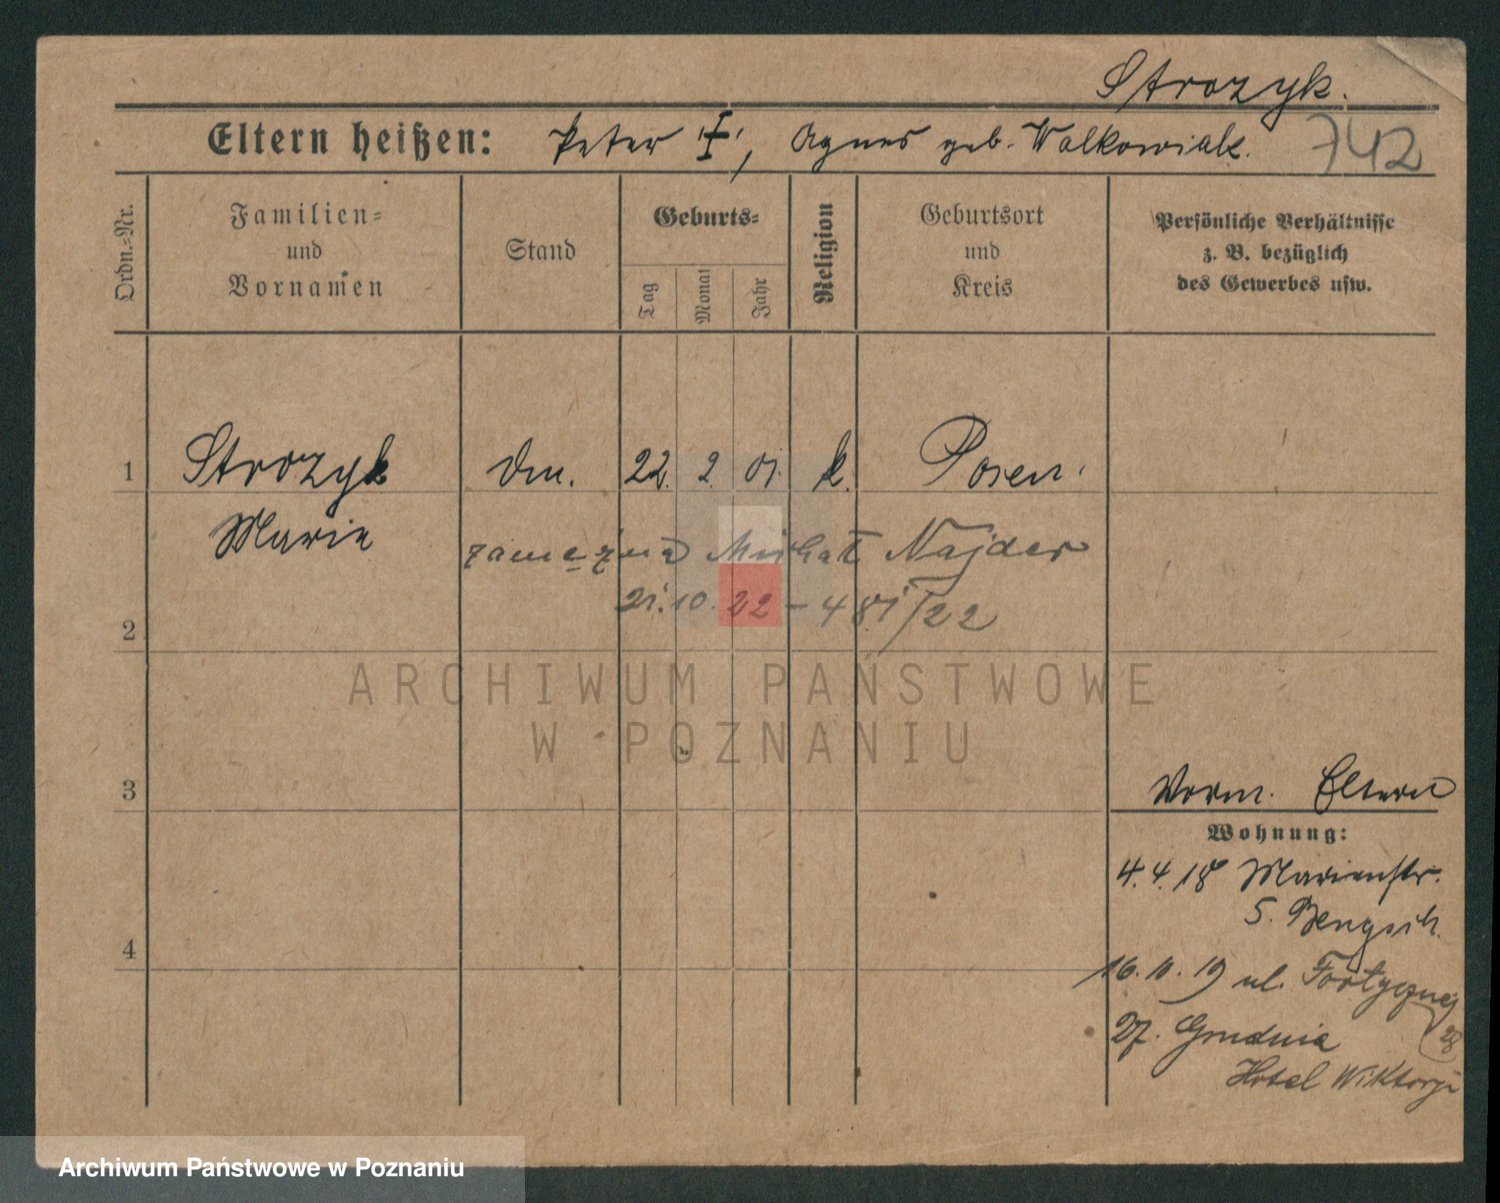 Strozyk.
Eltern heißen: Peter †, Agnes geb. Walkowiak.
742
Ordn.-Nr.
Familien-
und
Vornamen
Stand
Geburts-
Tag
Monat
Jahr
Religion
Geburtsort
und
Kreis
Persönliche Verhältnisse
z. B. bezüglich
des Gewerbes usw.
1 Strozyk 22. 2. 01. k. Posen.
Marie
zamężna Michał Najder
21.10.22 – 481/22
2
ARCHIWUM PAŃSTWOWE
W POZNANIU
3
Vorm. Eltern
Wohnung:
4.4.18 Marienstr.
5.
4
ul.
27. Grudnia
Hotel Wiktorji
Archiwum Państwowe w Poznaniu